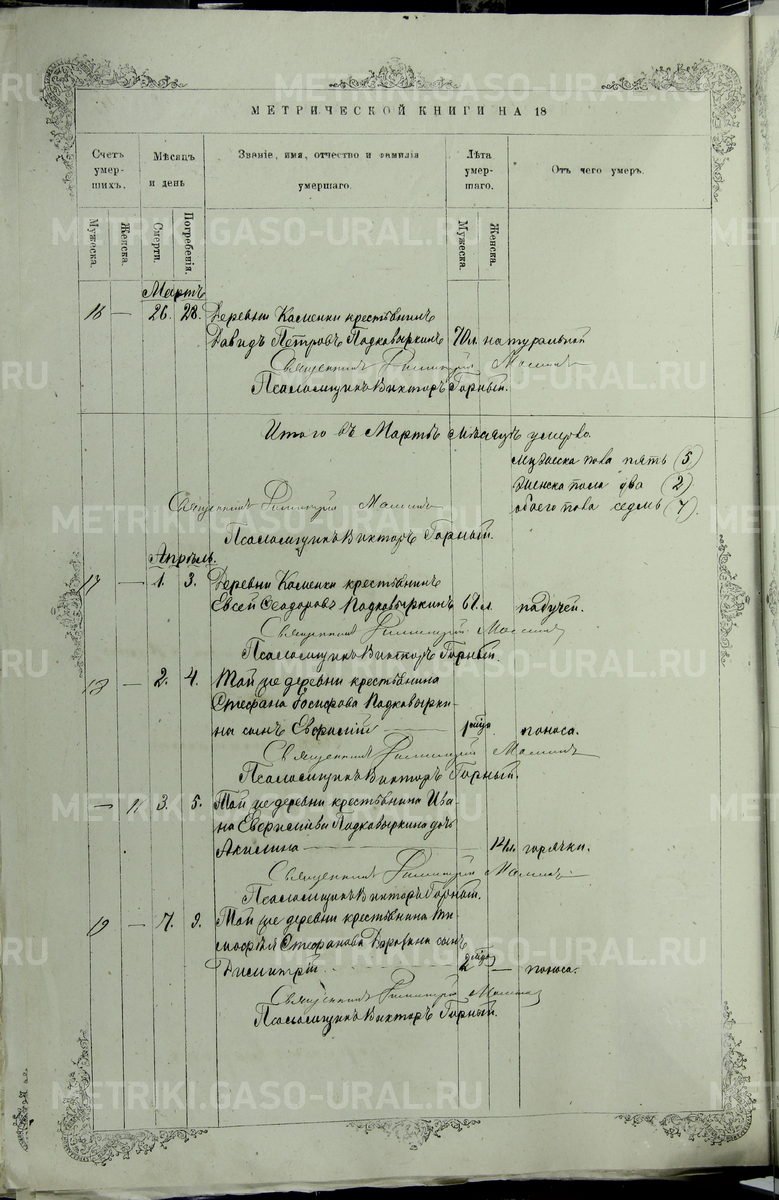 МЕТРИЧЕСКОЙ КНИГИ НА 18
Счетъ умер-шихъ.
Мѣсяцъ и день
Званіе, имя, отчество и фамилія умершаго.
Лѣта умер-шаго.
Отъ чего умеръ.
Мужеска.
Женска.
Смерти.
Погребенія.
Мужеска.
Женска.
Мартъ
16 — 26. 28. Деревни Каменки крестьянинъ
Давидъ Петровъ Подковыркинъ 70 л. натуральной
Священникъ Димитрій
Псаломщикъ Викторъ Горный.
Итого въ Мартѣ мѣсяцѣ умерло.
мужеска пола пять (5)
женска пола два (2)
обоего пола седмь (7).
Священникъ Димитрій
Псаломщикъ Викторъ Горный.
Апрѣль.
17 — 1. 3. Деревни Каменки крестьянинъ
Евсей Ѳеодоровъ Подковыркинъ 67 л. падучей.
Священникъ Димитрій
Псаломщикъ Викторъ Горный.
18 — 2. 4. Той же деревни крестьянина
Стефана Іосифова Подковырки-
на сынъ Евфимій — поноса.
Священникъ Димитрій
Псаломщикъ Викторъ Горный.
— 11 3. 5. Той же деревни крестьянина Ива-
на Подковыркина дочь
Акилина — 14 л. горячки.
Священникъ Димитрій
Псаломщикъ Викторъ Горный.
19 — 7. 9. Той же деревни крестьянина Ти-
мофѣя Стефанова сынъ
Димитрій — поноса.
Священникъ Димитрій
Псаломщикъ Викторъ Горный.
METRIKI.GASO-URAL.RU